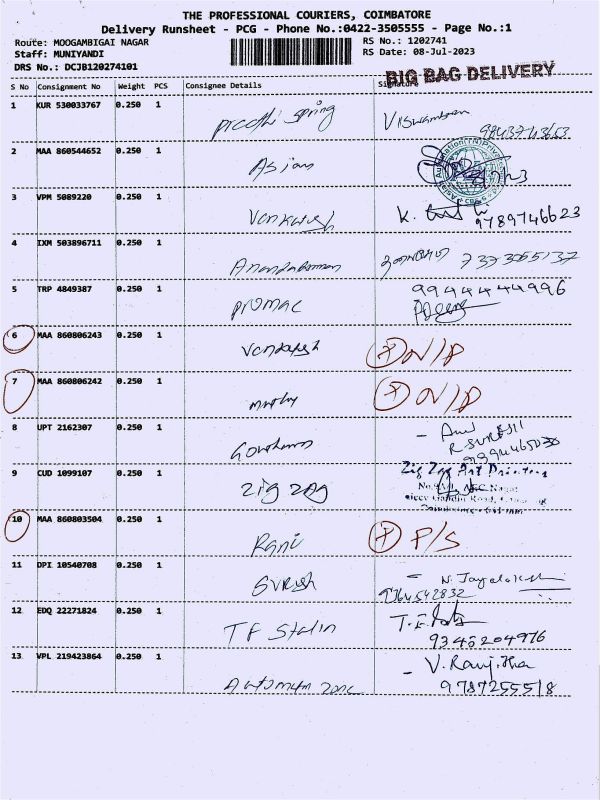 THE PROFESSIONAL COURIERS, COIMBATORE
Delivery Runsheet - PCG - Phone No.:0422-3505555 - Page No.:1
Route: MOOGAMBIGAI NAGAR RS No.: 1202741
Staff: MUNIYANDI RS Date: 08-Jul-2023
DRS No.: DCJB120274101
BIG BAG DELIVERY
S No Consignment No Weight PCS Consignee Details Signature
1 KUR 530033767 0.250 1 preethi spring Viswambaran
2 MAA 860544652 0.250 1 Asian
3 VPM 5089220 0.250 1 Venkatesh K.
9789746623
4 IXM 503896711 0.250 1 Anandaraman 7373055137
5 TRP 4849387 0.250 1 promac 9944444996
6 MAA 860806243 0.250 1 Venkatesh
7 MAA 860806242 0.250 1
8 UPT 2162307 0.250 1 Gowtham
R SURESH
9 CUD 1099107 0.250 1 zig zag Zig Zag Art Printers
10 MAA 860803504 0.250 1 Rani P/S
11 DPI 10540708 0.250 1 Suresh N. Jayalakshmi
9364542832
12 EDQ 22271824 0.250 1 TF Stalin
9345204976
13 VPL 219423864 0.250 1 Automan zone - V. Ranjitha
9787255518